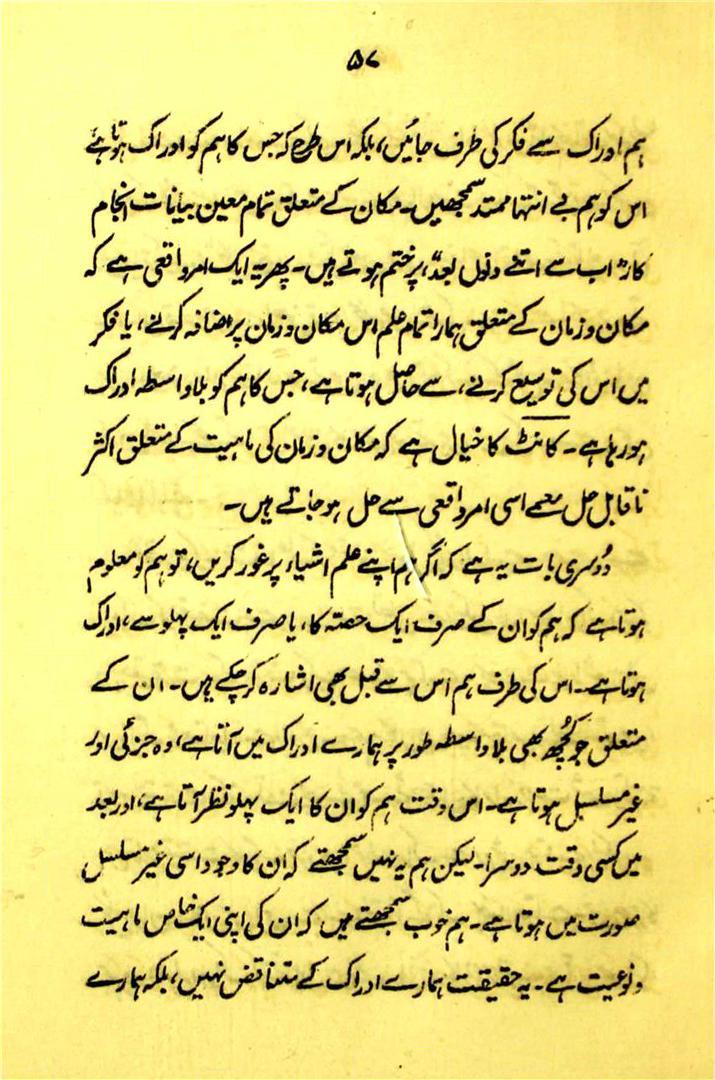 ۵۷
ہم ادراک سے فکر کی طرف جائیں، بلکہ اس طرح کہ جس کا ہم کو ادراک ہوتا ہے
اس کو ہم بے انتہا ممتد سمجھیں۔ مکان کے متعلق تمام معین بیانات انجام
کار" اب سے اتنے دنوں بعد"، پر ختم ہوتے ہیں۔ پھر یہ ایک امر واقعی ہے کہ
مکان و زمان کے متعلق ہمارا تمام علم اس مکان و زمان پر اضافہ کرنے، یا فکر
میں اس کی توسیع کرنے، سے حاصل ہوتا ہے، جس کا ہم کو بلا واسطہ ادراک
ہو رہا ہے۔ کانٹ کا خیال ہے کہ مکان و زمان کی ماہیت کے متعلق اکثر
ناقابل حل معمے اسی امر واقعی سے حل ہو جاتے ہیں۔
دوسری بات یہ ہے کہ اگر ہم اپنے علم اشیاء پر غور کریں، تو ہم کو معلوم
ہوتا ہے کہ ہم کو ان کے صرف ایک حصتہ کا، یا صرف ایک پہلو سے، ادراک
ہوتا ہے۔ اس کی طرف ہم اس سے قبل بھی اشارہ کر چکے ہیں۔ ان کے
متعلق جو کُچھ بھی بلا واسطہ طور پر ہمارے ادراک میں آتا ہے، وہ جزئی اور
غیر مسلسل ہوتا ہے۔ اس وقت ہم کو ان کا ایک پہلو نظر آتا ہے، اور بعد
میں کسی وقت دوسرا۔ لیکن ہم یہ نہیں سمجھتے کہ ان کا وجود اسی غیر مسلسل
صورت میں ہوتا ہے۔ ہم خوب سمجھتے ہیں کہ ان کی اپنی ایک خاص ماہیت
و نوعیت ہے۔ یہ حقیقت ہمارے ادراک کے متناقض نہیں، بلکہ ہمارے